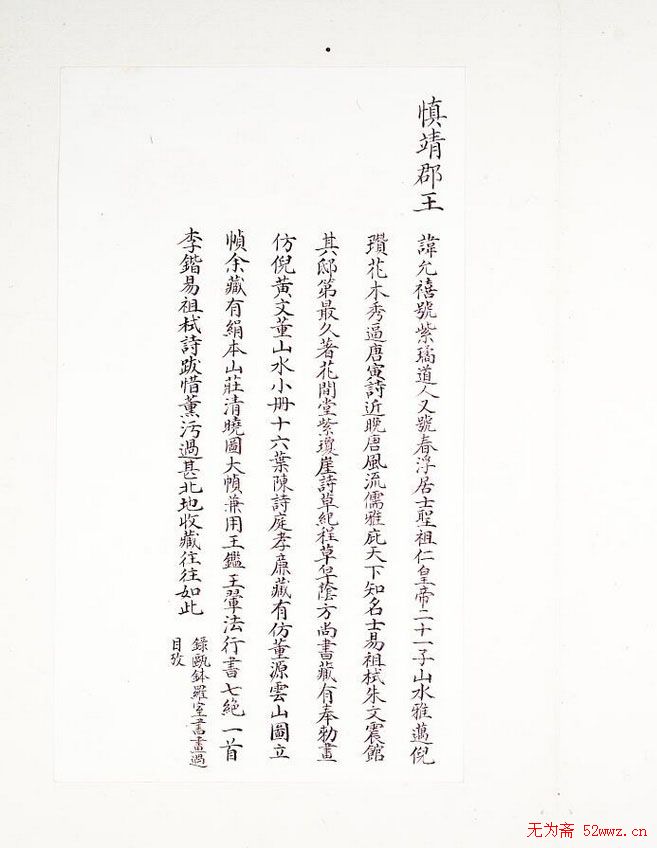 慎靖郡王
諱允禧號紫璚道人又號春浮居士聖祖仁皇帝二十一子山水雅邁倪
瓚花木秀過唐寅詩近晚唐風流儒雅庇天下知名士易祖栻朱文震館
其邸第最久著花間堂紫瓊崖詩草紀程草皐蔭方尚書藏有奉勑畫
仿倪黃文董山水小冊十六葉陳詩庭孝廉藏有仿董源雲山圖立
幀余藏有絹本山莊清曉圖大幀兼用王鑑王翬法行書七絕一首
李鍇易祖栻詩跋惜薰污過甚北地收藏往往如此
錄甌鉢羅室書畫過
目攷
无为斋 52wwz.cn